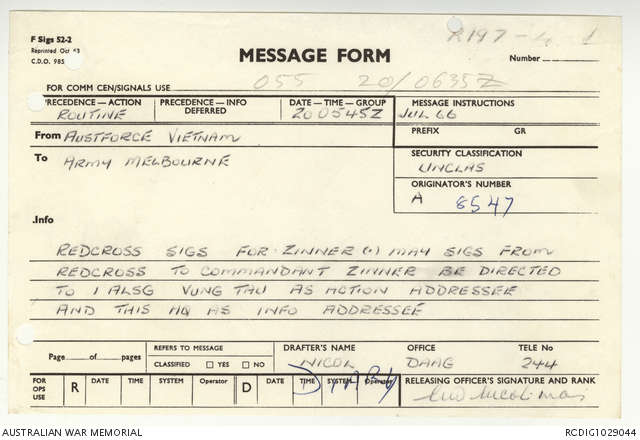 F Sigs 52-2
Reprinted Oct 63
C.D.O. 985
R197-4-1
MESSAGE FORM
Number
FOR COMM CEN/SIGNALS USE 055 20/0635Z
PRECEDENCE — ACTION
ROUTINE
PRECEDENCE — INFO
DEFERRED
DATE — TIME — GROUP
200545Z
MESSAGE INSTRUCTIONS
JUL 66
PREFIX GR
From AUSTFORCE VIETNAM
To ARMY MELBOURNE
SECURITY CLASSIFICATION
UNCLAS
ORIGINATOR'S NUMBER
A 6547
.Info
REDCROSS SIGS FOR ZINNER (.) MAY SIGS FROM
REDCROSS TO COMMANDANT ZINNER BE DIRECTED
TO 1 ALSG VUNG TAU AS ACTION ADDRESSEE
AND THIS HQ AS INFO ADDRESSEE
Page of pages
REFERS TO MESSAGE
CLASSIFIED YES NO
DRAFTER'S NAME
NICOL
OFFICE
DAAG
TELE No
244
FOR OPS USE
R DATE TIME SYSTEM Operator D DATE TIME SYSTEM Operator
RELEASING OFFICER'S SIGNATURE AND RANK
AUSTRALIAN WAR MEMORIAL
RCDIG1029044